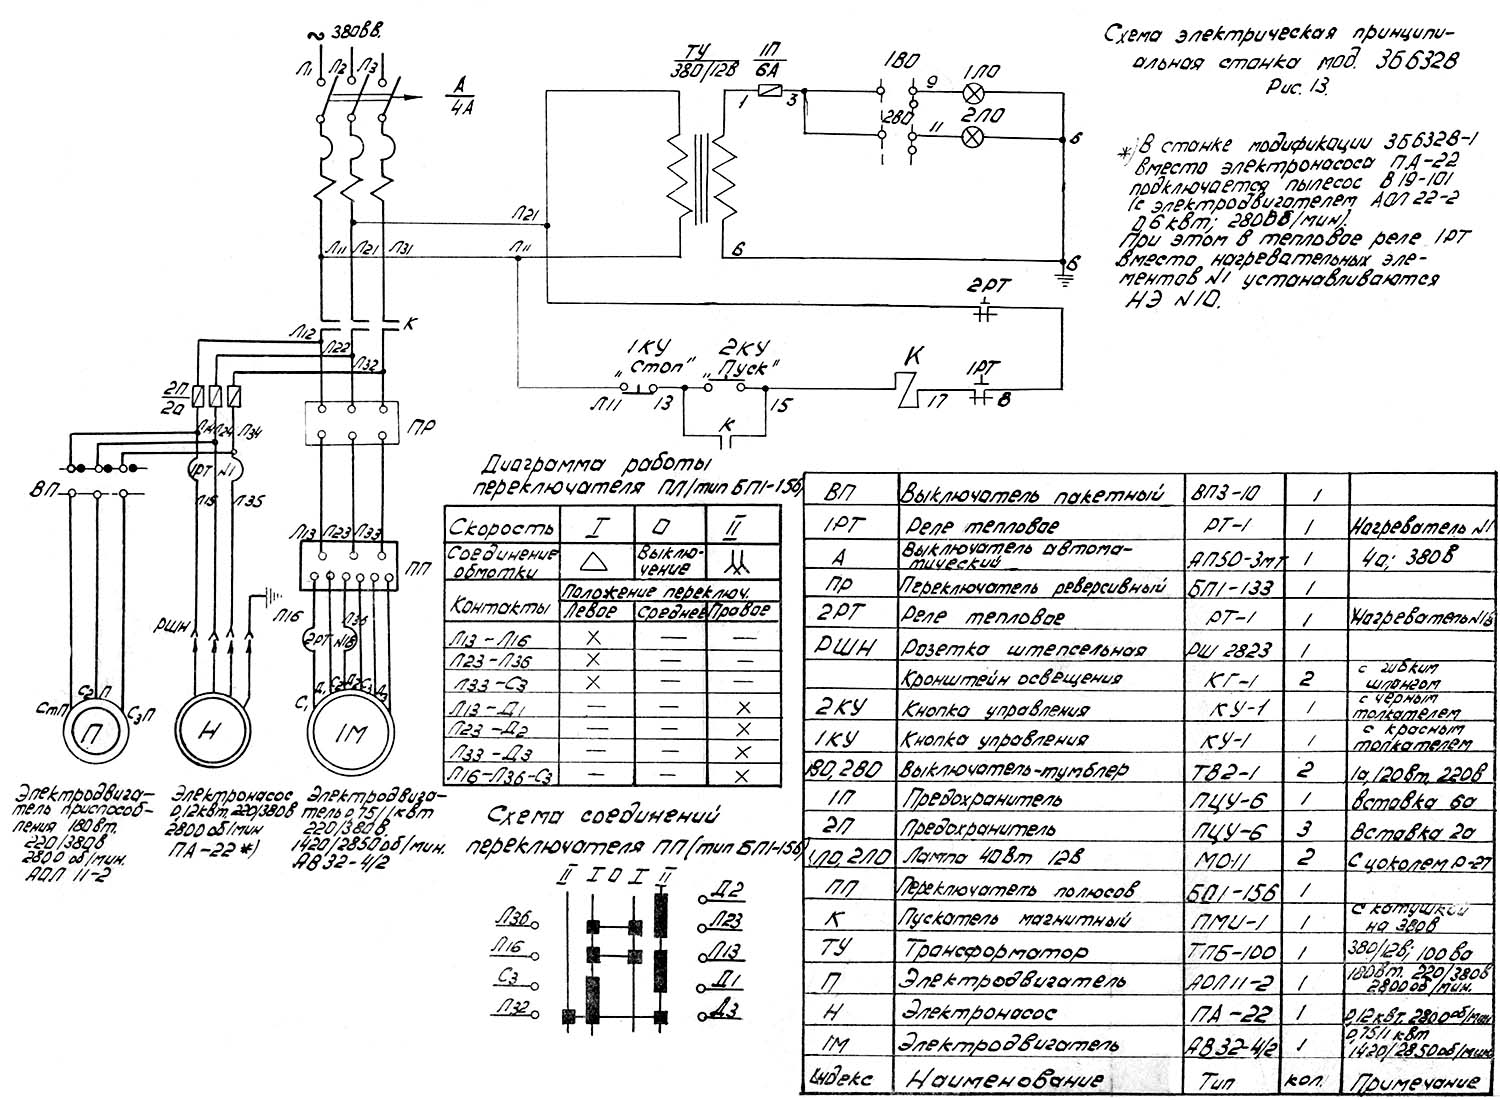 ~ 380вв.
Л1 Л2 Л3
А
4А
ТУ
380/12В
1П
6А
1 3
1ВО
9 1ЛО
2ВО
11 2ЛО
Б
Б
Б
Схема электрическая принципи-
альная станка мод. 3Б632В
Рис. 13.
*) В станке модификации 3Б632В-1
вместо электронасоса ПА-22
подключается пылесос В19-101
(с электродвигателем АОЛ 22-2
0,6 квт; 2800 об/мин).
При этом в тепловое реле 1РТ
вместо нагревательных эле-
ментов №1 устанавливаются
НЭ №10.
Л21
Л11
Л11 Л21 Л31
К
Л12
Л22
Л32
2П
2а
2РТ
1КУ
„Стоп"
2КУ
„Пуск"
К
1РТ
Л11 13 15 17 8
К
ПР
Л14 Л24 Л34
1РТ №1
Л15 Л35
ВП
Л13 Л23 Л33
ПП
РШН
Л16 Л36
2РТ №1В
С1 Д1 С2 Д2 С3 Д3
С1П С2П С3П
П
Н
1М
Электродвига-
тель приспособ-
ления 180вт.
220/380в
2800 об/мин.
АОЛ 11-2
Электронасос
0,12квт. 220/380в
2800 об/мин
ПА-22 *)
Электродвига-
тель 0,75/1 квт
220/380в.
1420/2850 об/мин.
АВ 32-4/2
Диаграмма работы
переключателя ПП/тип БП1-156)
Скорость I О II
Соединение обмотки △ Выклю-чение
Контакты Положение переключ.
Левое Среднее Правое
Л13-Л16 × — —
Л23-Л36 × — —
Л33-С3 × — —
Л13-Д1 — — ×
Л23-Д2 — — ×
Л33-Д3 — — ×
Л16-Л36-С3 — — ×
Схема соединений
переключателя ПП (тип БП1-156)
II I О I II
Л36
Л16
С3
Л32
Д2
Л23
Л13
Д1
Д3
ВП Выключатель пакетный ВПЗ-10 1
1РТ Реле тепловое РТ-1 1 Нагреватель №1
А Выключатель автома-тический АП50-3мт 1 4а; 380в
ПР Переключатель реверсивный БП1-133 1
2РТ Реле тепловое РТ-1 1 Нагреватель №1В
РШН Розетка штепсельная РШ 2823 1
Кронштейн освещения КГ-1 2 с гибким шлангом
2КУ Кнопка управления КУ-1 1 с черным толкателем
1КУ Кнопка управления КУ-1 1 с красным толкателем
1ВО,2ВО Выключатель-тумблер ТВ2-1 2 1а,120вт 220в
1П Предохранитель ПЦУ-6 1 Вставка 6а
2П Предохранитель ПЦУ-6 3 Вставка 2а
1ЛО,2ЛО Лампа 40вт 12в МО11 2 С цоколем Р-27
ПП Переключатель полюсов БП1-156 1
К Пускатель магнитный ПМИ-1 1 с катушкой на 380в
ТУ Трансформатор ТПБ-100 1 380/12в; 100ва
П Электродвигатель АОЛ11-2 1 180вт. 220/380в 2800об/мин.
Н Электронасос ПА-22 1 0,12квт. 2800об/мин
1М Электродвигатель АВ32-4/2 1 0,75/1 квт 1420/2850об/мин
Индекс Наименование Тип кол. Примечание